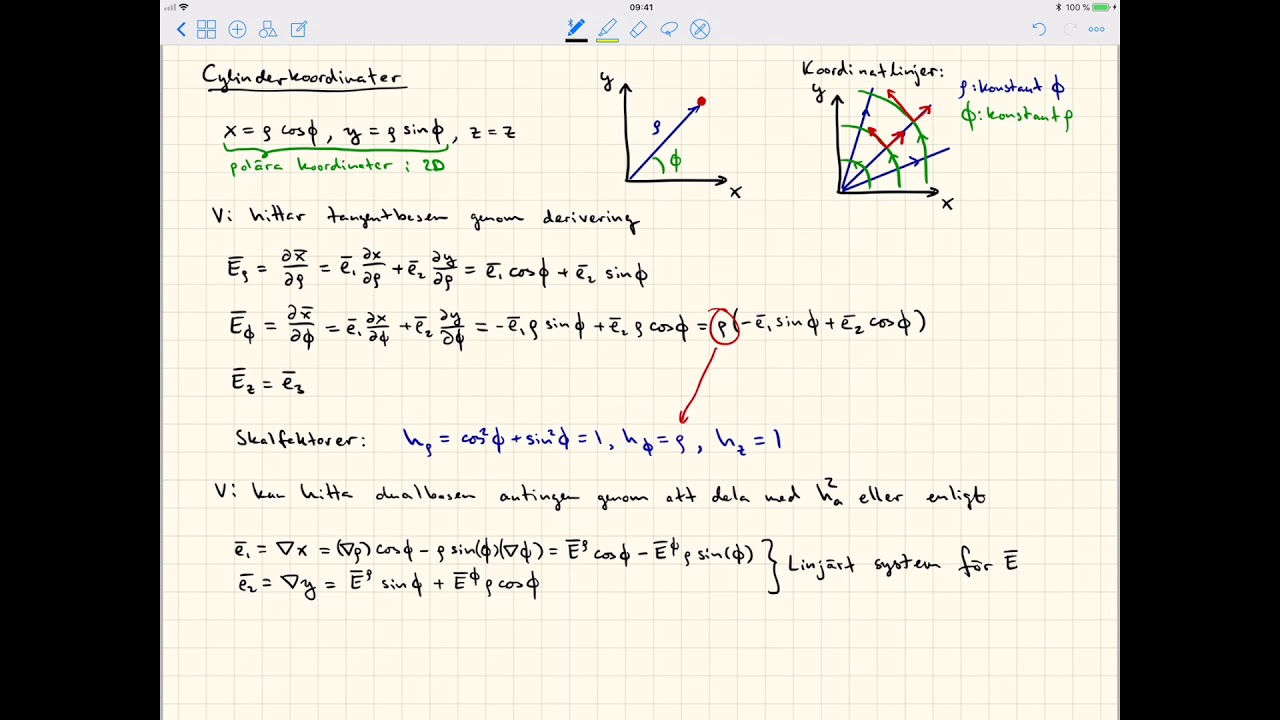 09:41
100 %
Cylinderkoordinater
x = ρ cosϕ, y = ρ sinϕ, z = z
polära koordinater : 2D
y
ρ
ϕ
x
Koordinatlinjer:
y
x
ρ: konstant ϕ
ϕ: konstant ρ
Vi hittar tangentbasen genom derivering
E̅_ρ = ∂x̅/∂ρ = e̅₁ ∂x/∂ρ + e̅₂ ∂y/∂ρ = e̅₁ cosϕ + e̅₂ sinϕ
E̅_ϕ = ∂x̅/∂ϕ = e̅₁ ∂x/∂ϕ + e̅₂ ∂y/∂ϕ = -e̅₁ ρ sinϕ + e̅₂ ρ cosϕ = ρ(-e̅₁ sinϕ + e̅₂ cosϕ)
E̅_z = e̅₃
Skalfektorer: h_ρ = cos²ϕ + sin²ϕ = 1, h_ϕ = ρ, h_z = 1
Vi kan hitta dualbasen antingen genom att dela med h_a² eller enligt
e̅₁ = ∇x = (∇ρ) cosϕ - ρ sin(ϕ)(∇ϕ) = E̅^ρ cosϕ - E̅^ϕ ρ sin(ϕ)
e̅₂ = ∇y = E̅^ρ sinϕ + E̅^ϕ ρ cosϕ
} Linjärt system för E̅